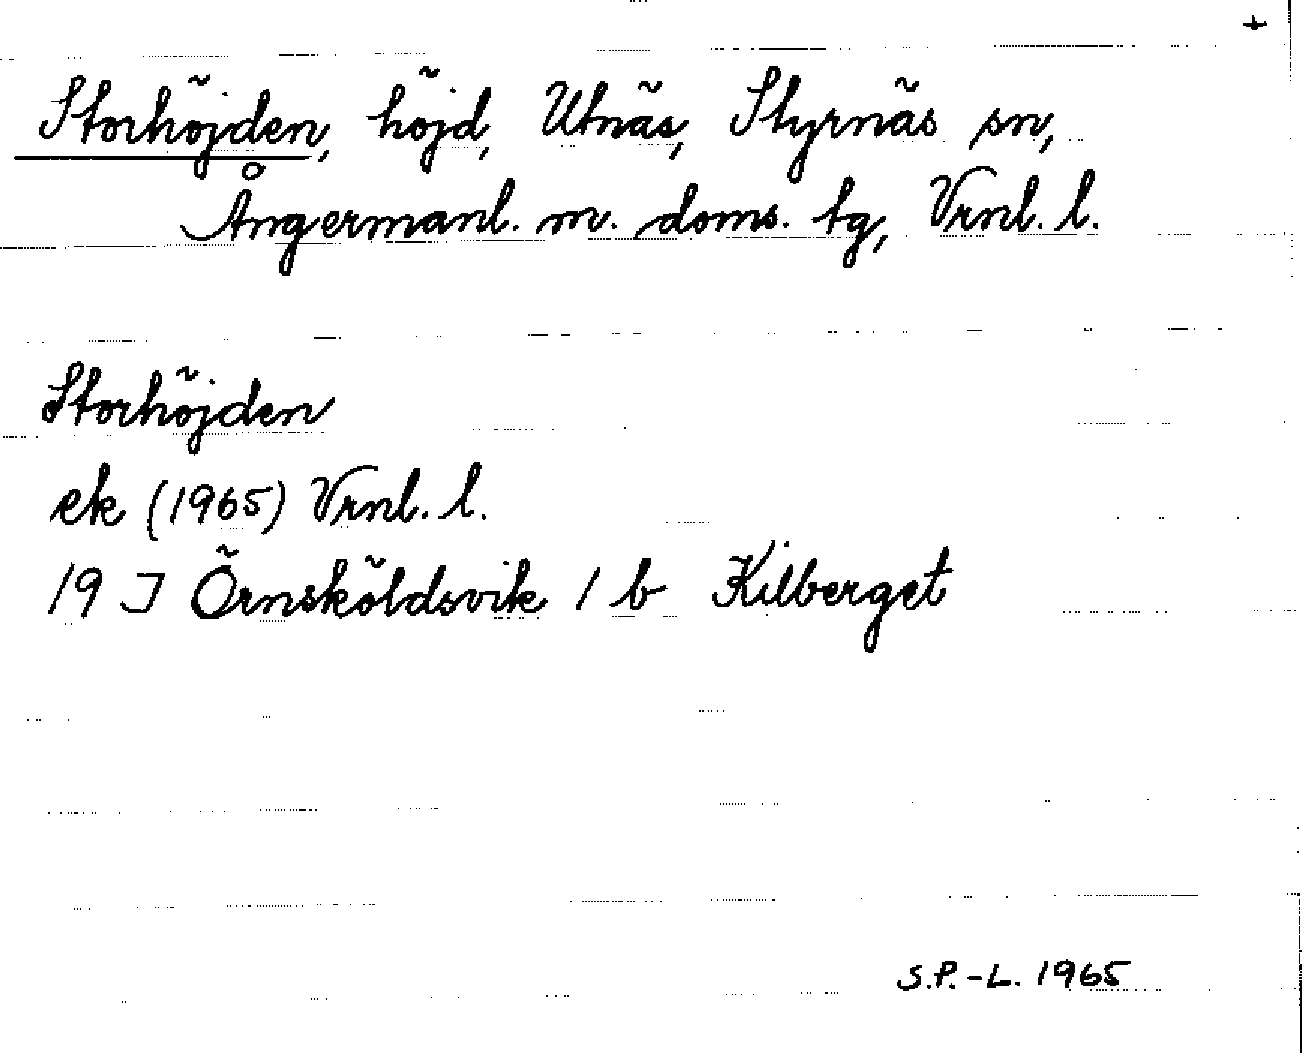 +
Storhöjden, höjd, Utnäs, Styrnäs sn,
Ångermanl. m. doms. tg, Vrnl. l.
Storhöjden
ek (1965) Vrnl. l.
19 J Örnsköldsvik 1 b Kilberget
S.P.-L. 1965